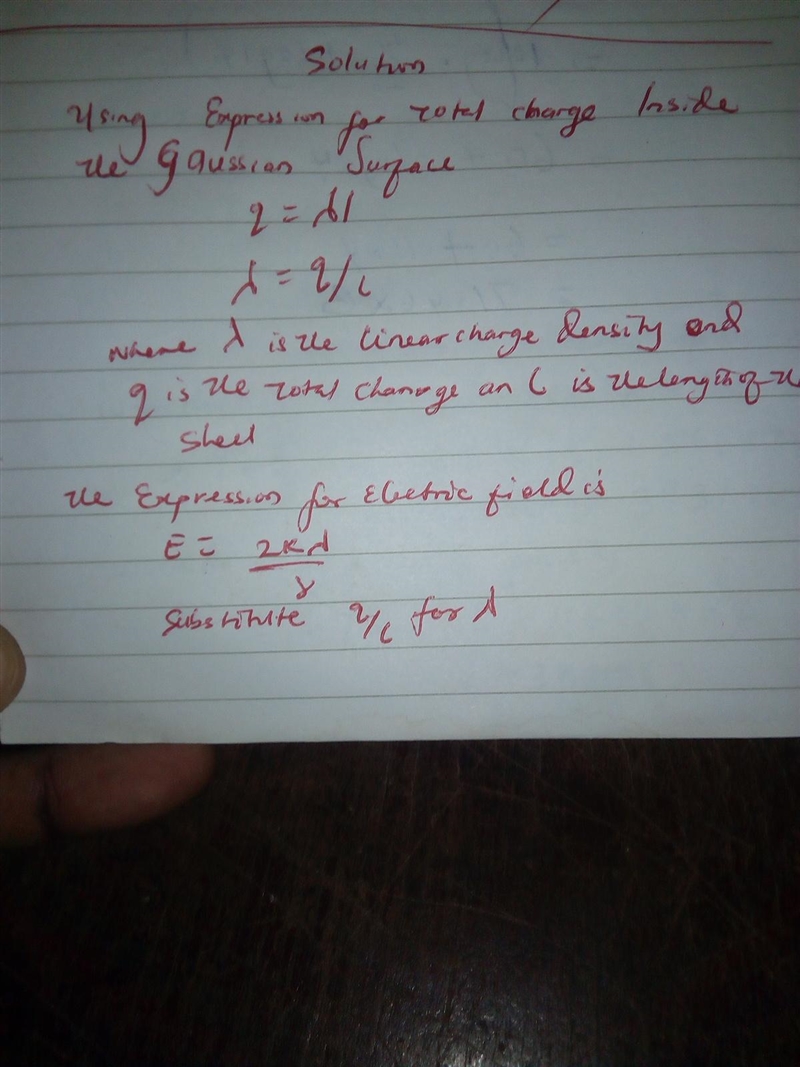 Solution
Using Expression for total charge Inside
the Gaussian Surface
q = λl
λ = q/L
where λ is the linear charge density and
q is the total charge an L is the length of the
shell
the Expression for Electric field is
E = 2Kλ
r
Substitute q/L for λ